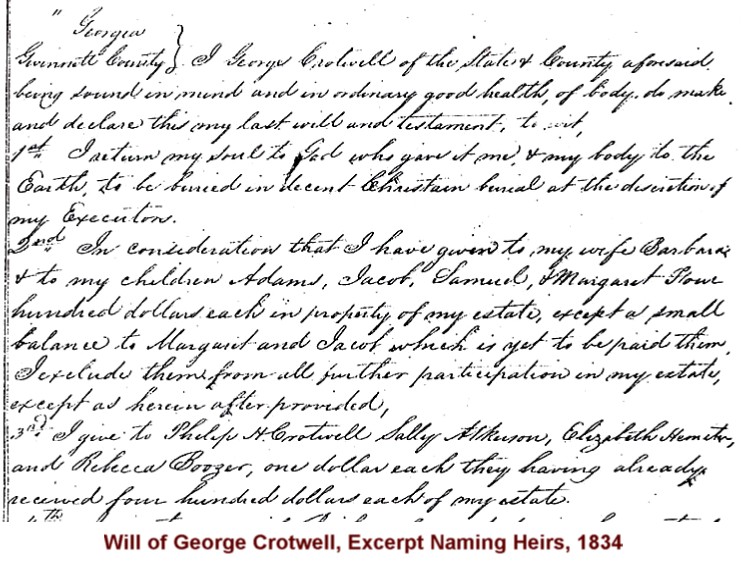 " Georgia
Gwinnett County } I George Crotwell of the State & County aforesaid
being sound in mind and in ordinary good health, of body. do make
and declare this my last will and testament, to wit,
1st I return my soul to God who gave it me, & my body to the
Earth, to be buried in decent Christain burial at the discretion of
my Executors.
2nd In consideration that I have given to my wife Barbara
& to my children Adams, Jacob, Samuel, & Margaret Four
hundred dollars each in property of my estate, except a small
balance to Margaret and Jacob which is yet to be paid them,
I exclude them from all further participation in my estate,
except as herein after provided,
3rd I give to Philip H. Crotwell Sally Atkinson, Elizabeth
and Rebecca Boozer, one dollar each they having already
received four hundred dollars each of my estate.
4th
Will of George Crotwell, Excerpt Naming Heirs, 1834